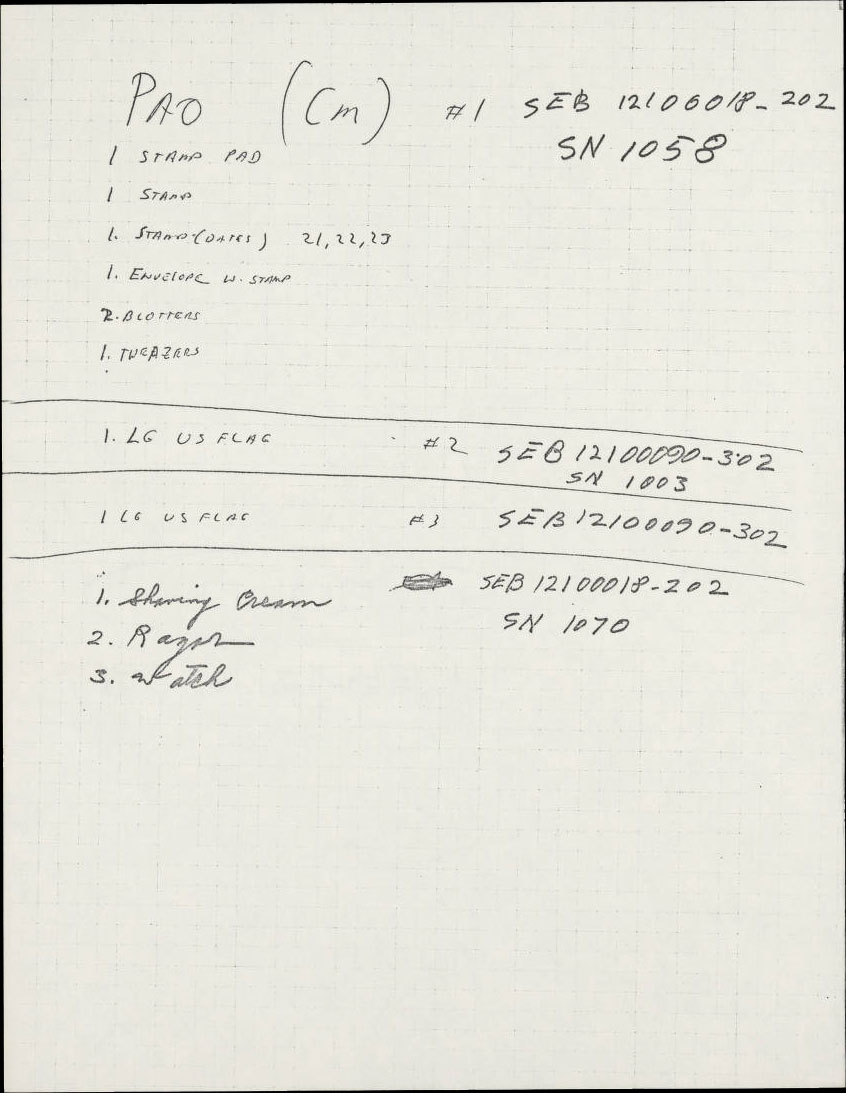 PAO (Cm) #1 SEB 12106018-202
SN 1058
1 STAMP PAD
1 STAMP
1. STAMP (DATES) 21, 22, 23
1. ENVELOPE W. STAMP
2. BLOTTERS
1. TWEAZERS
1. LG US FLAG #2 SEB 12100090-302
SN 1003
1 LG US FLAG #3 SEB 12100090-302
1. Shaving Cream SEB 12100018-202
SN 1070
2. Razor
3. Watch